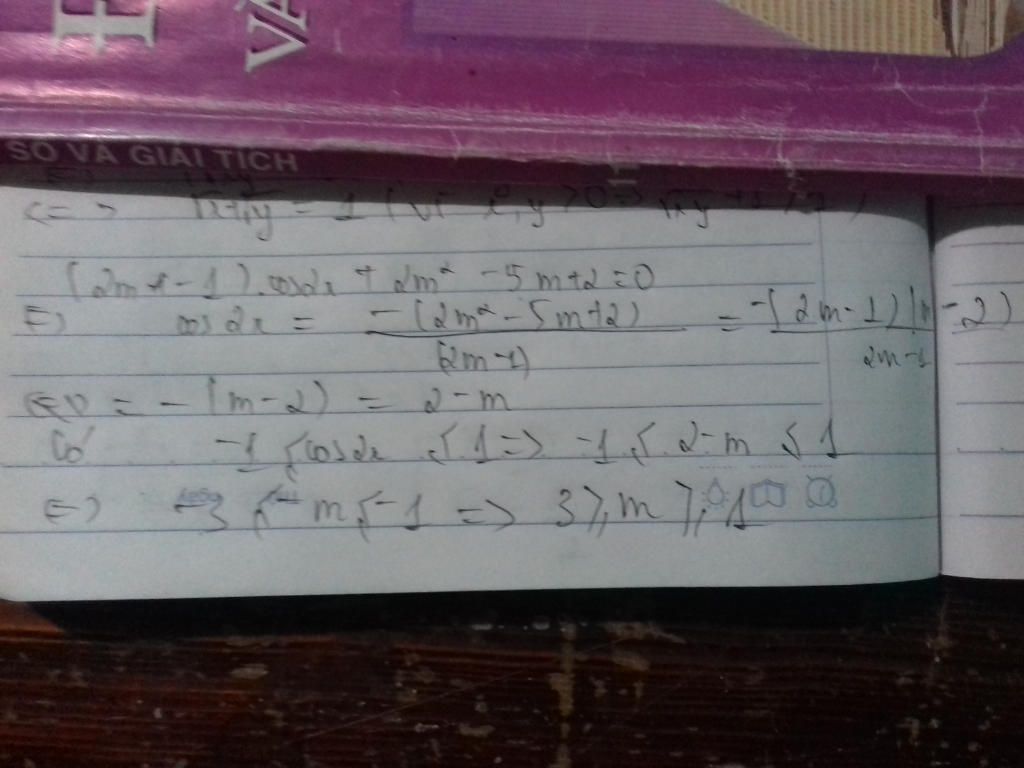 VÀ
SỐ VÀ GIẢI TÍCH
<=> = 1 (vì x, y > 0 =>
(2m - 1).cos2x + 2m² - 5m + 2 = 0
<=> cos 2x = -(2m² - 5m + 2) / (2m - 1) = -(2m - 1)(m - 2) / 2m - 1
= -(m - 2) = 2 - m
Có -1 ≤ cos2x ≤ 1 => -1 ≤ 2 - m ≤ 1
<=> -3 ≤ -m ≤ -1 => 3 ≥ m ≥ 1